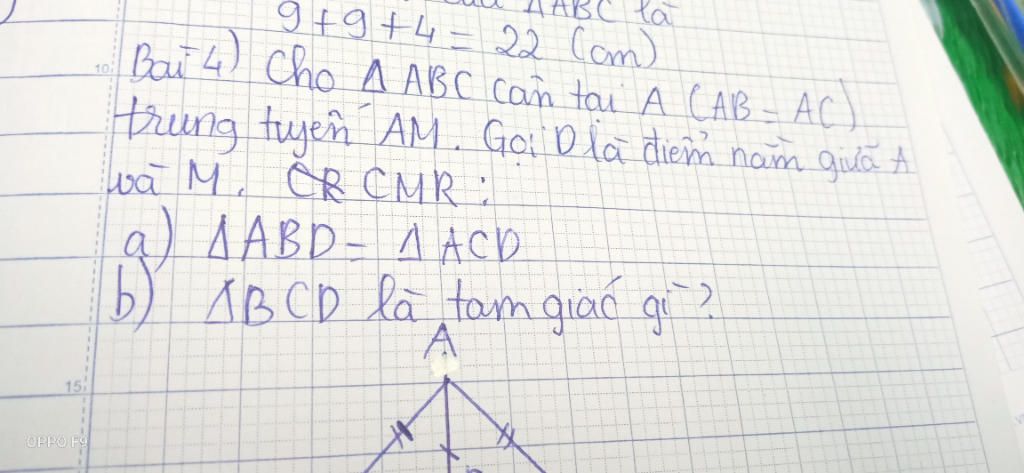 ΔABC là
9 + 9 + 4 = 22 (cm)
10 Bài 4) Cho Δ ABC cân tại A (AB = AC)
trung tuyến AM. Gọi D là điểm nằm giữa A
và M. CMR:
a) ΔABD = Δ ACD
b) ΔBCD là tam giác gì?
A
15
OPPO F9